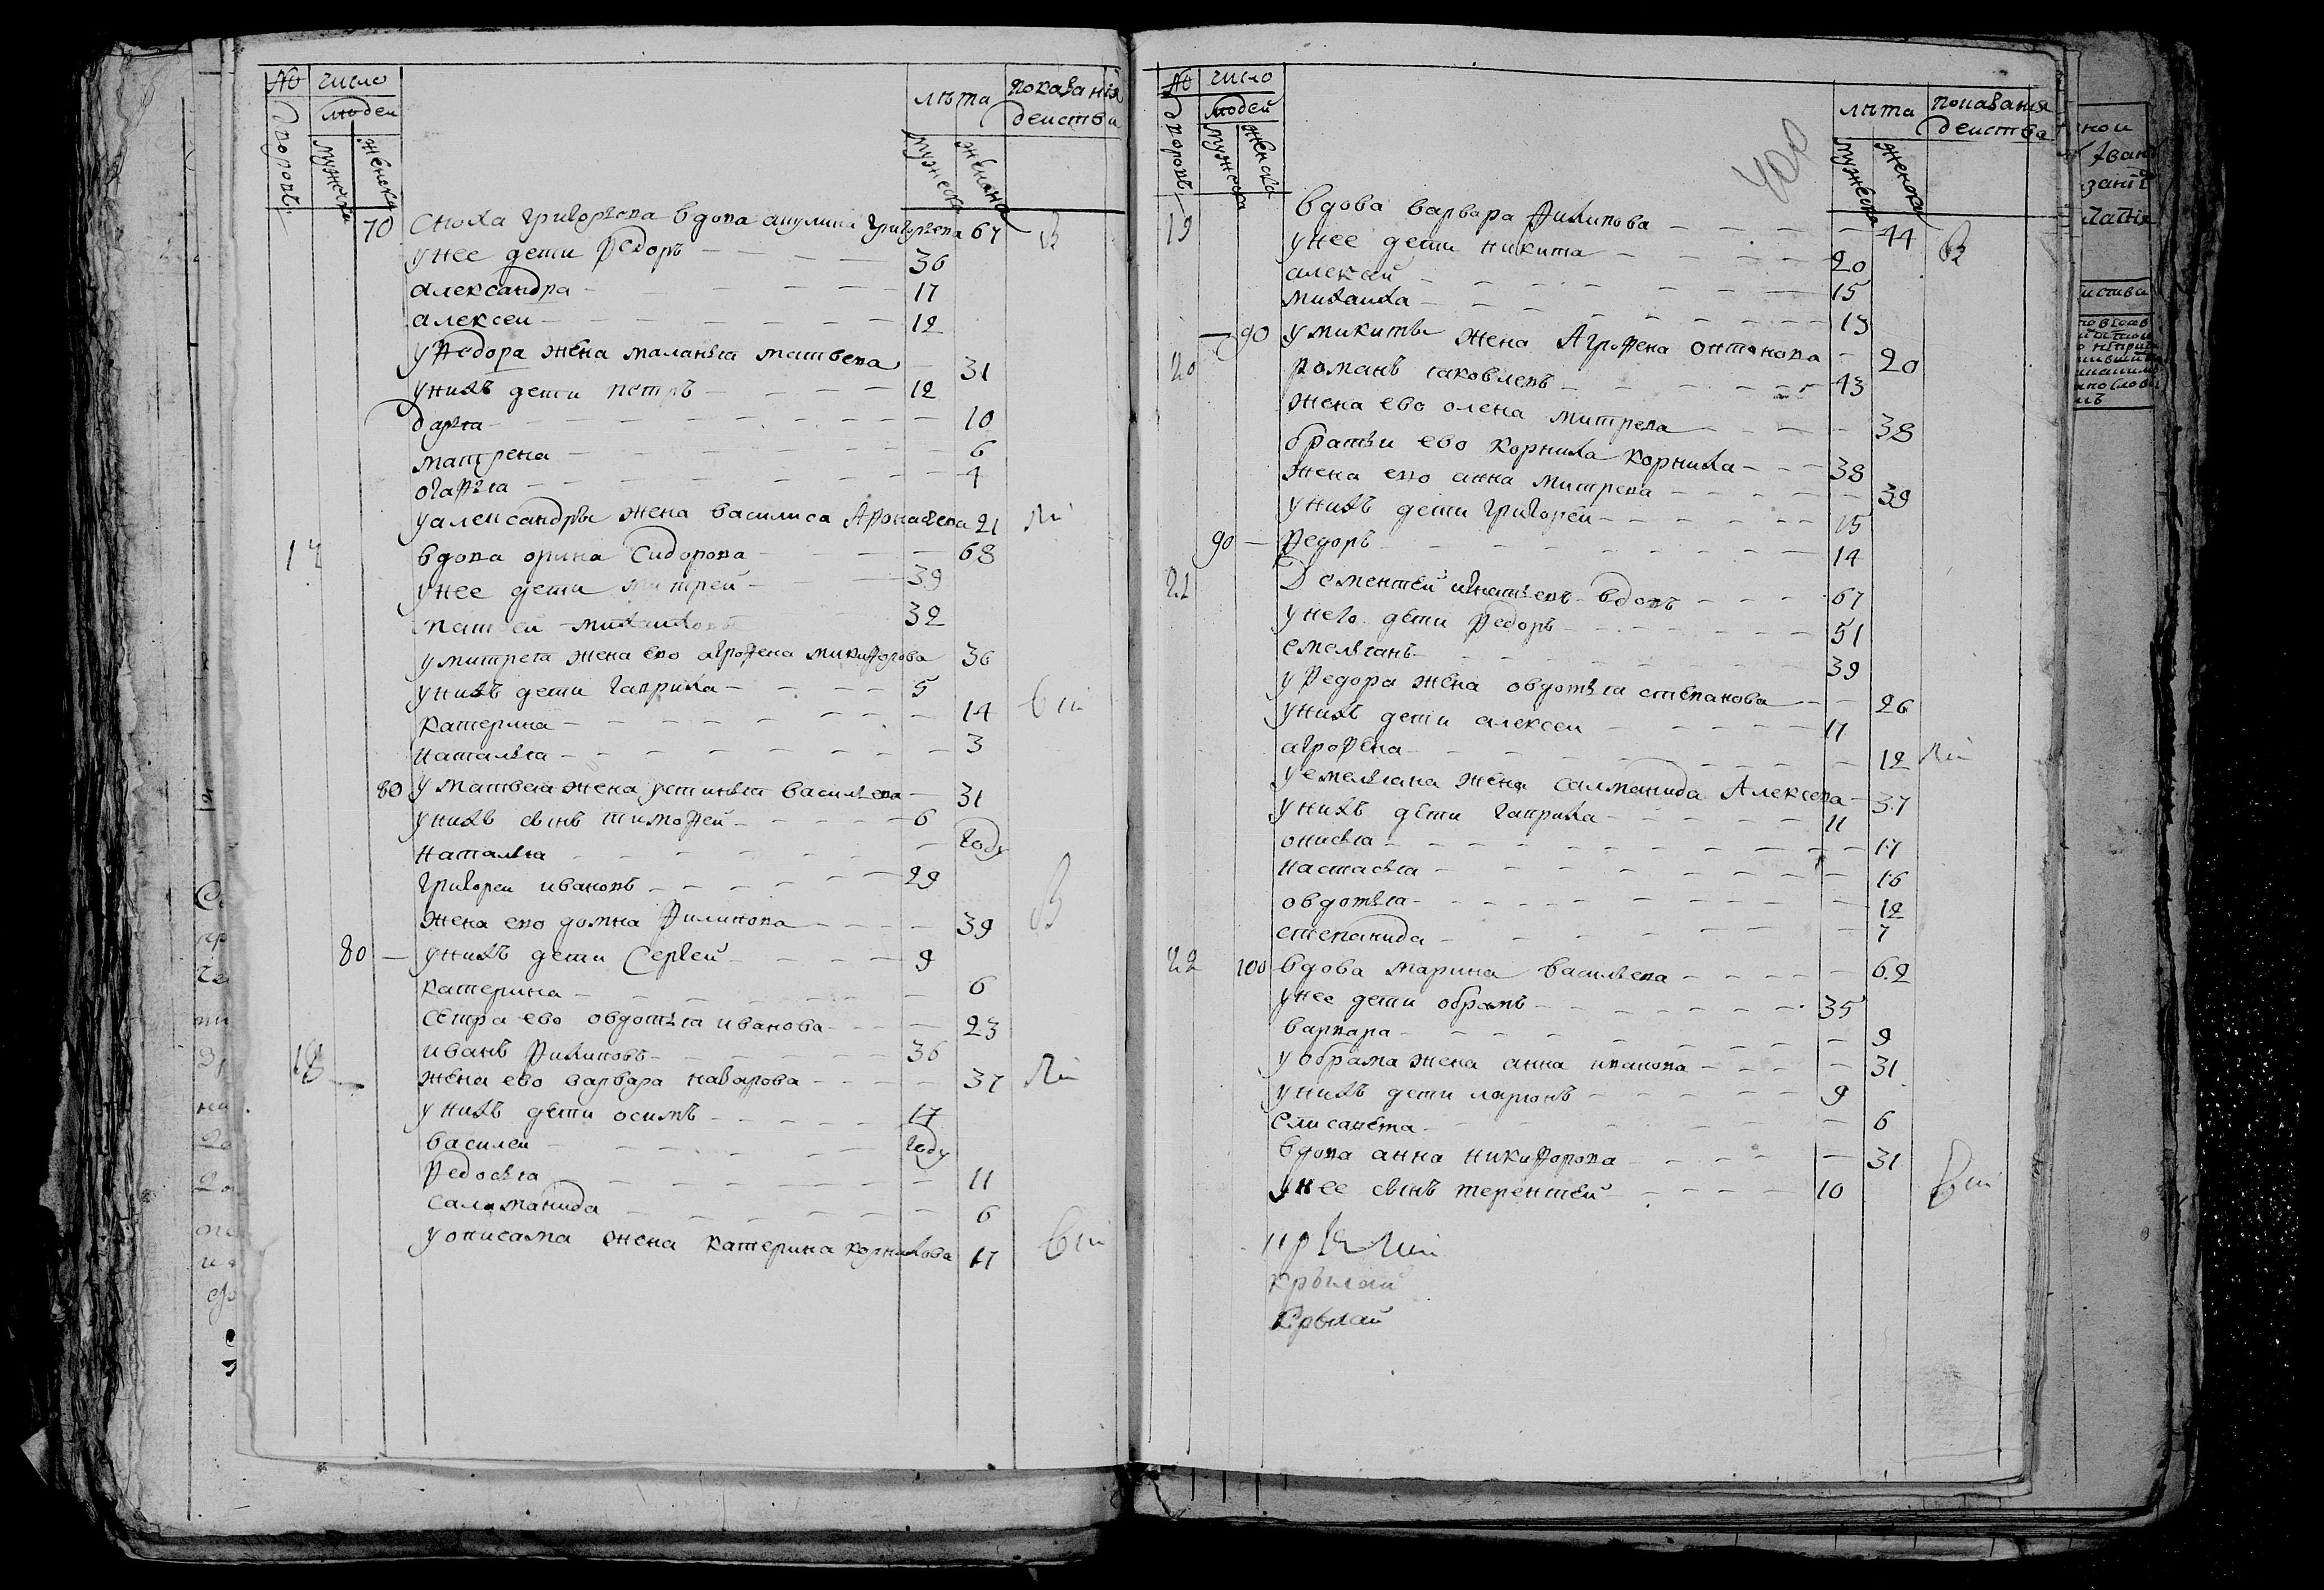 № число лѣта показания
дворовъ людей действа
мужеска женска мужеска женска
70 Сноха григорьева вдова акулина григорьева 67
у нее дети федоръ 36
александра 17
алексеи 12
у федора жена маланья матвева 31
у нихъ дети петръ 12
дарья 10
матрена 6
огафья 4
у александры жена василиса Афонасьева 21
17 вдова орина Сидорова 68
у нее дети митрей 39
матвей михаиловъ 32
у митрея жена ево агрофена микифорова 36
у нихъ дети гаврила 5
катерина 14
наталья 3
80 у матвея жена устинья васильева 31
у нихъ сынъ тимофей 6
наталья году
григореи ивановъ 29
жена ево домна филипова 39
80 у нихъ дети Сергей 9
катерина 6
сетра ево овдотья иванова 23
18 иванъ филиповъ 36
жена ево варвара назарова 37
у нихъ дети осимъ 17
василеи году
федосья 11
саломанида 6
у онисама жена катерина корнилова 17
№ число лѣта показания
дворовъ людей действа
мужеска женска мужеска женска
19 вдова варвара филипова 44
у нее дети никита 20
алексей 15
михаила 13
90 у микиты жена Агрофена онтонова 20
20 романъ яковлевъ 43
жена ево олена митрева 38
братьи ево корнила корнила 38
жена ево анна митрева 39
у нихъ дети григореи 15
90 федоръ 14
21 Дементей игнатьевъ вдовъ 67
у него дети федоръ 51
емельянъ 39
у федора жена овдотья степанова 26
у нихъ дети алексеи 11
агрофена 12
у емельяна жена салманида Алексева 37
у нихъ дети гаврила 11
онисья 17
настасья 16
овдотья 12
степанида 7
22 100 вдова марина васильева 62
у нее дети обрамъ 35
варвара 9
у обрама жена анна иванова 31
у нихъ дети ларионъ 9
елисавета 6
вдова анна никифорова 31
у нее сынъ терентей 10
крылай
крылай